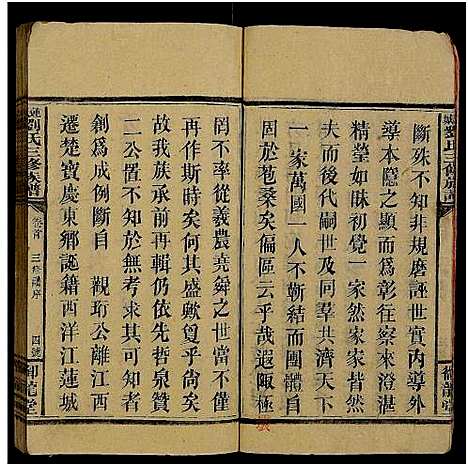 斷殊不知非規磨誣世實內導外
導本隱之顯而爲彰往察來澄湛
精瑩如昧初覺一家然家家皆然
夫而後代嗣世世共濟天下
一家萬國一人不靳結而團體自
固於苞桑矣偏區云乎哉遐陬極
罔不率從羲農堯舜之世當不僅
再作斯時矣何其盛歟敻乎尙矣
我族承前再辦仍依先哲泉贊
二公置不可無考求其可
創爲成例斷自 觀珩公離江西
遷楚寶慶東鄉誕籍西洋江蓮城
劉氏三修族譜
卷首 三修譜序 四號
御龍堂